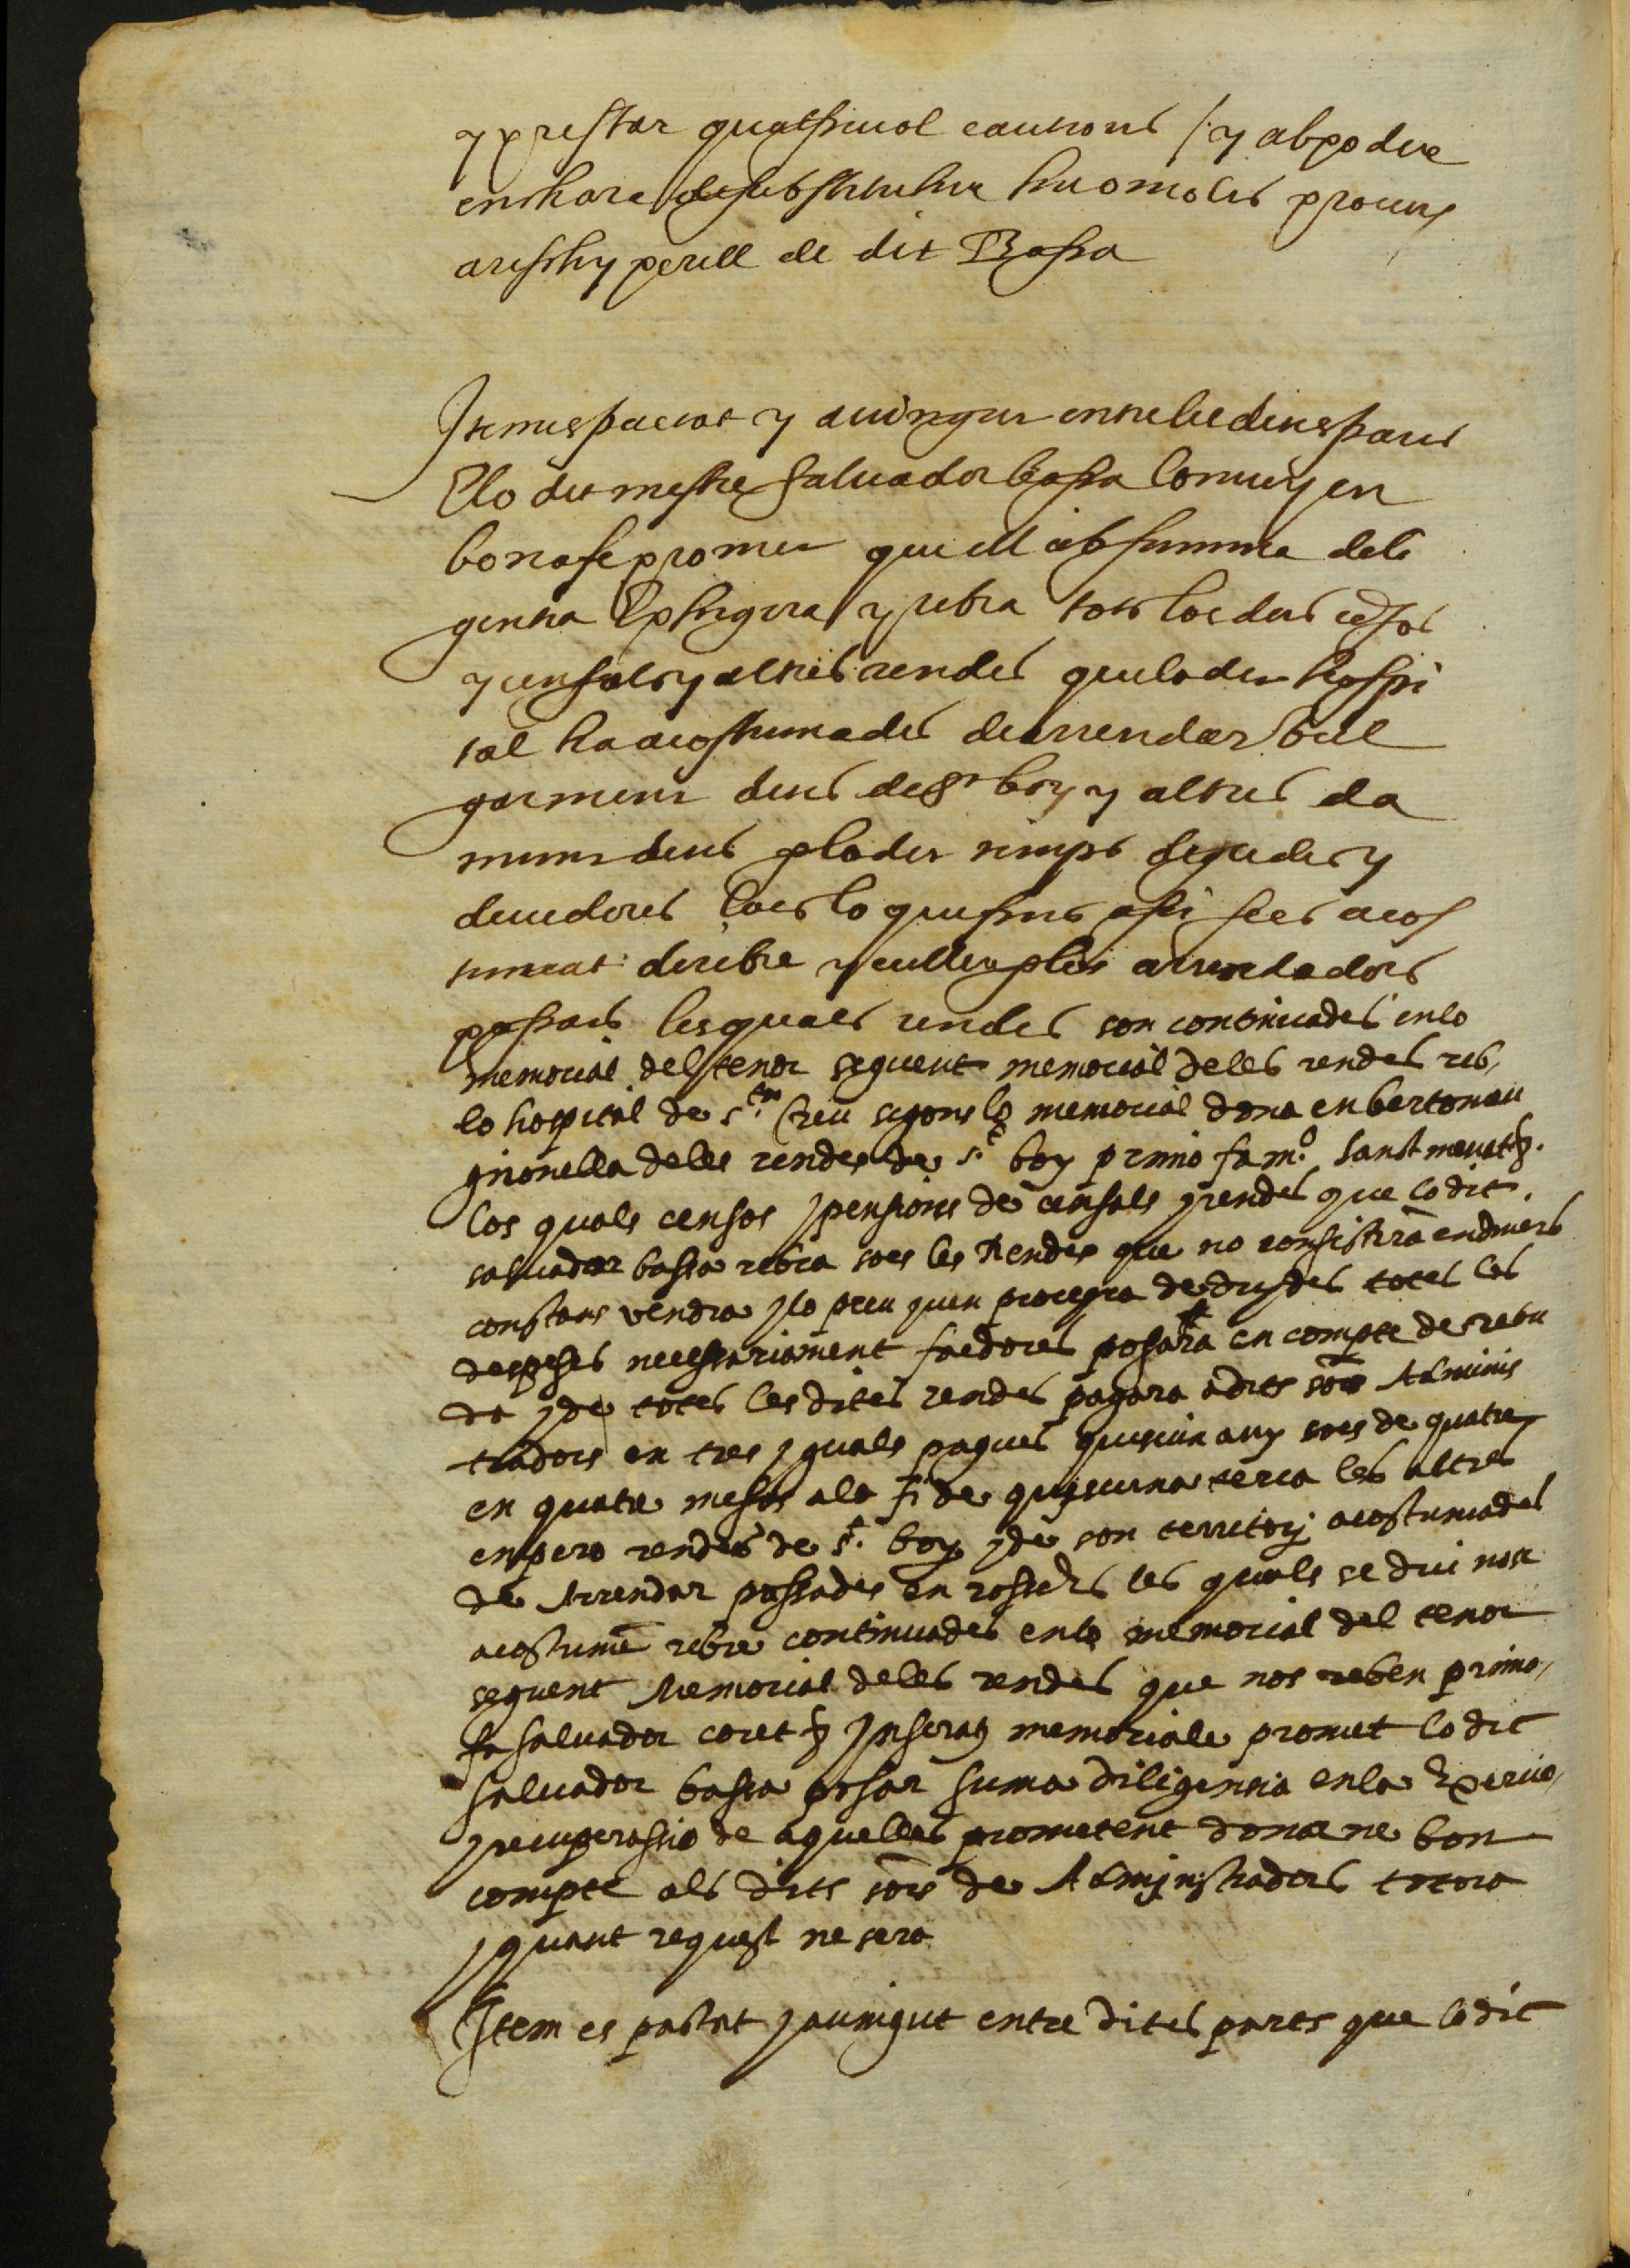 y prestar qualsevol cautions / y ab poder
enchara de substituhir hu o moles procurs
a risch y perill de dit Bassa
Item es pactat y avingut entre les dites parts
E lo dit mestre Salvador bassa conve y en
bona fe promet que ell ab summa deli
gentia exhigira y rebra tots los dits cesos
y censals y altres rendes que lo dit hospi
tal ha acostumades de arrendar vul
garment dites de St boy y altres da
munt dites p lo dit temps degudes y
devedores ço es lo que fins assi se es acos
tumat de rebre y cullir p los arrendadors
passats les quals rendes son continuades en lo
memorial del tenor seguent memorial de les rendes reb
lo hospital de S.ta Creu segons lo memorial dona en bertomeu
gironella de les rendes de S.t boy primo fam.o
los quals censos y pensions de censals y rendes que lo dit
salvador bassa rebra ço es les Rendes que no consistiran en diners
constans vendra y lo preu quen procegra deduydes totes les
despeses necessariament faedores posara en compte de rebu
da y de totes les dites rendes pagara a dits sors Adminis
tradors en tres yguals pagues quiscun any ço es de quatre
en quatre mesos a la fi de quiscuna terca les altres
empero rendes de S.t boy y de son territori acostumades
de Arrendar possades en rossechs les quals se diu no se
acostumen rebre continuades en lo memorial del tenor
seguent Memorial de les rendes que nos reben primo
fa salvador coret y Inserats memoriale promet lo dit
salvador bassa posar suma diligentia en la Exercio
y recuperassio de aquelles prometent donarne bon
compte als dits sors de Administradors tothora
y quant request ne sera
Item es pactat y avingut entre dites parts que lo dit